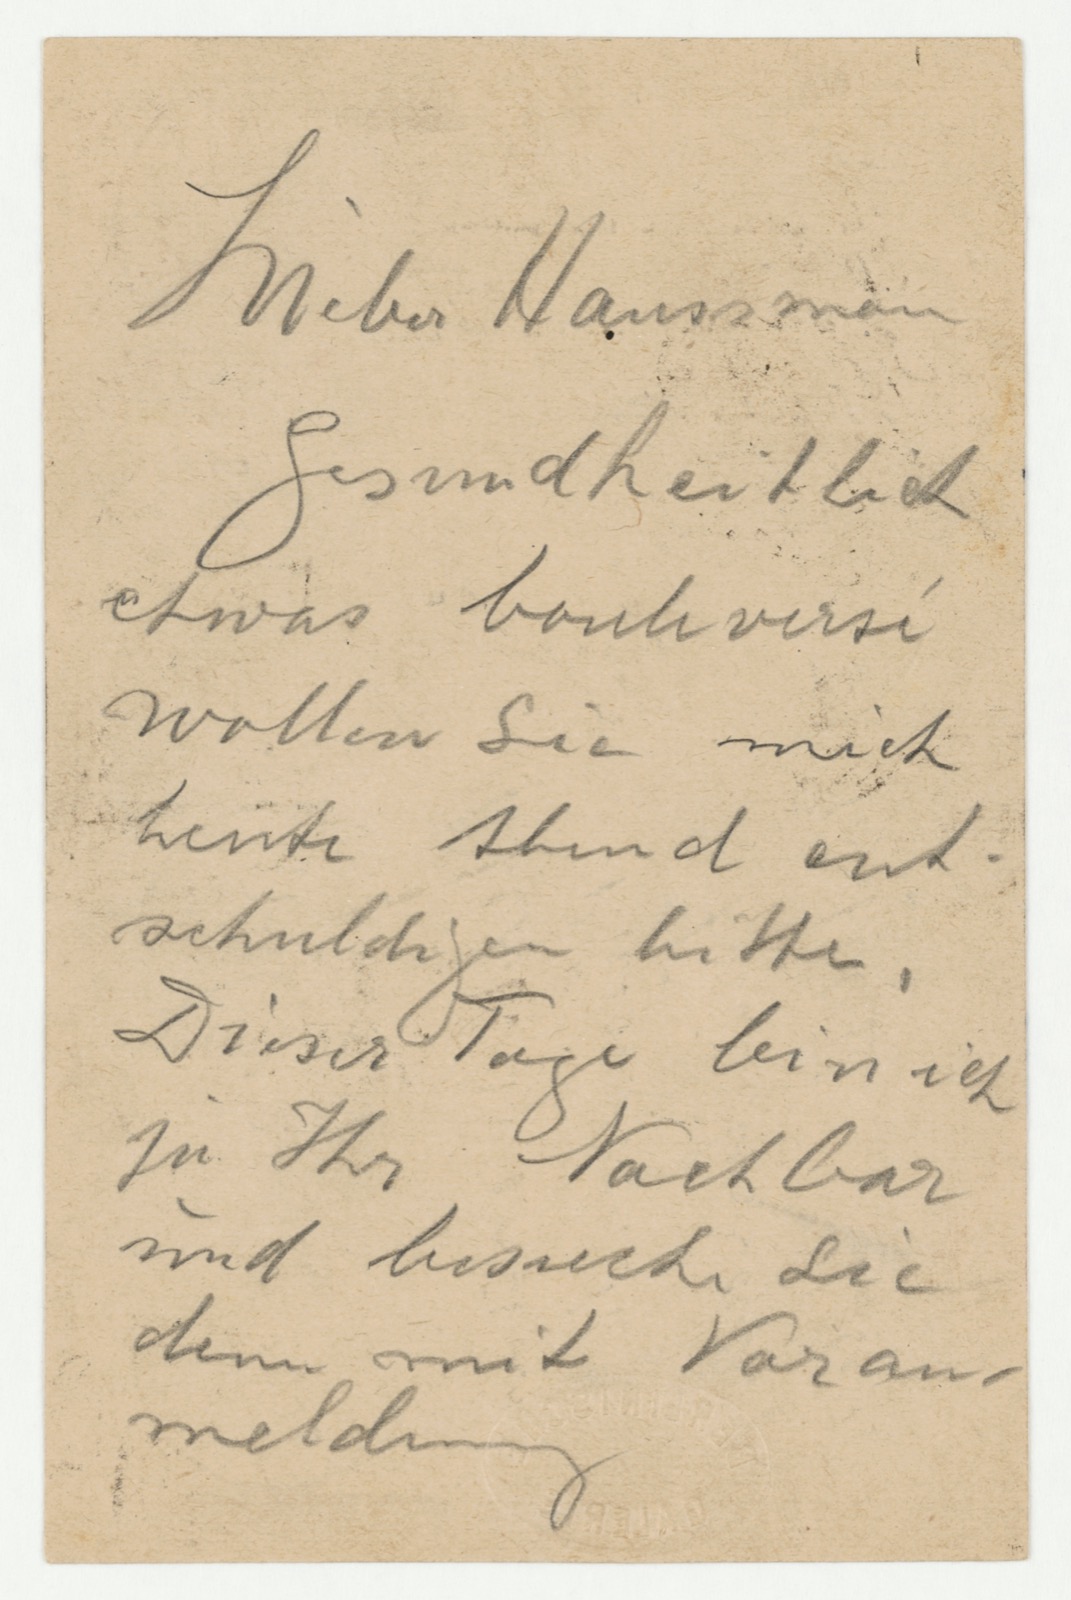 Lieber Haussmann
Gesundheitlich
etwas bouleversé
wollen Sie mich
heute Abend ent-
schuldigen bitte,
Dieser Tage bin ich
ja Ihr Nachbar
und besuche Sie
dann mit Voran-
meldung